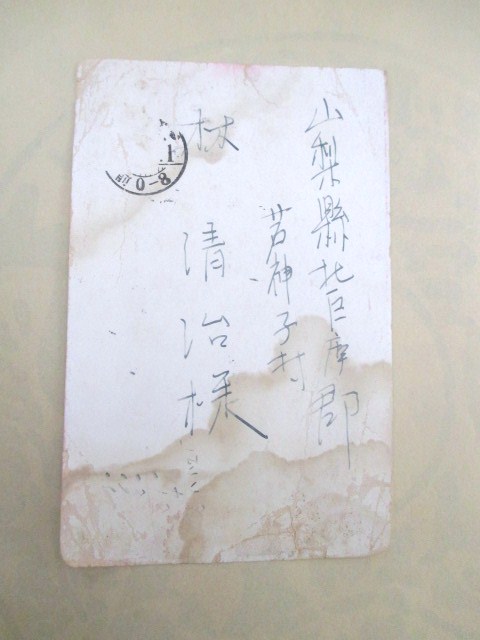 山梨縣北巨摩郡
若神子村
林 清治様
1
0-8